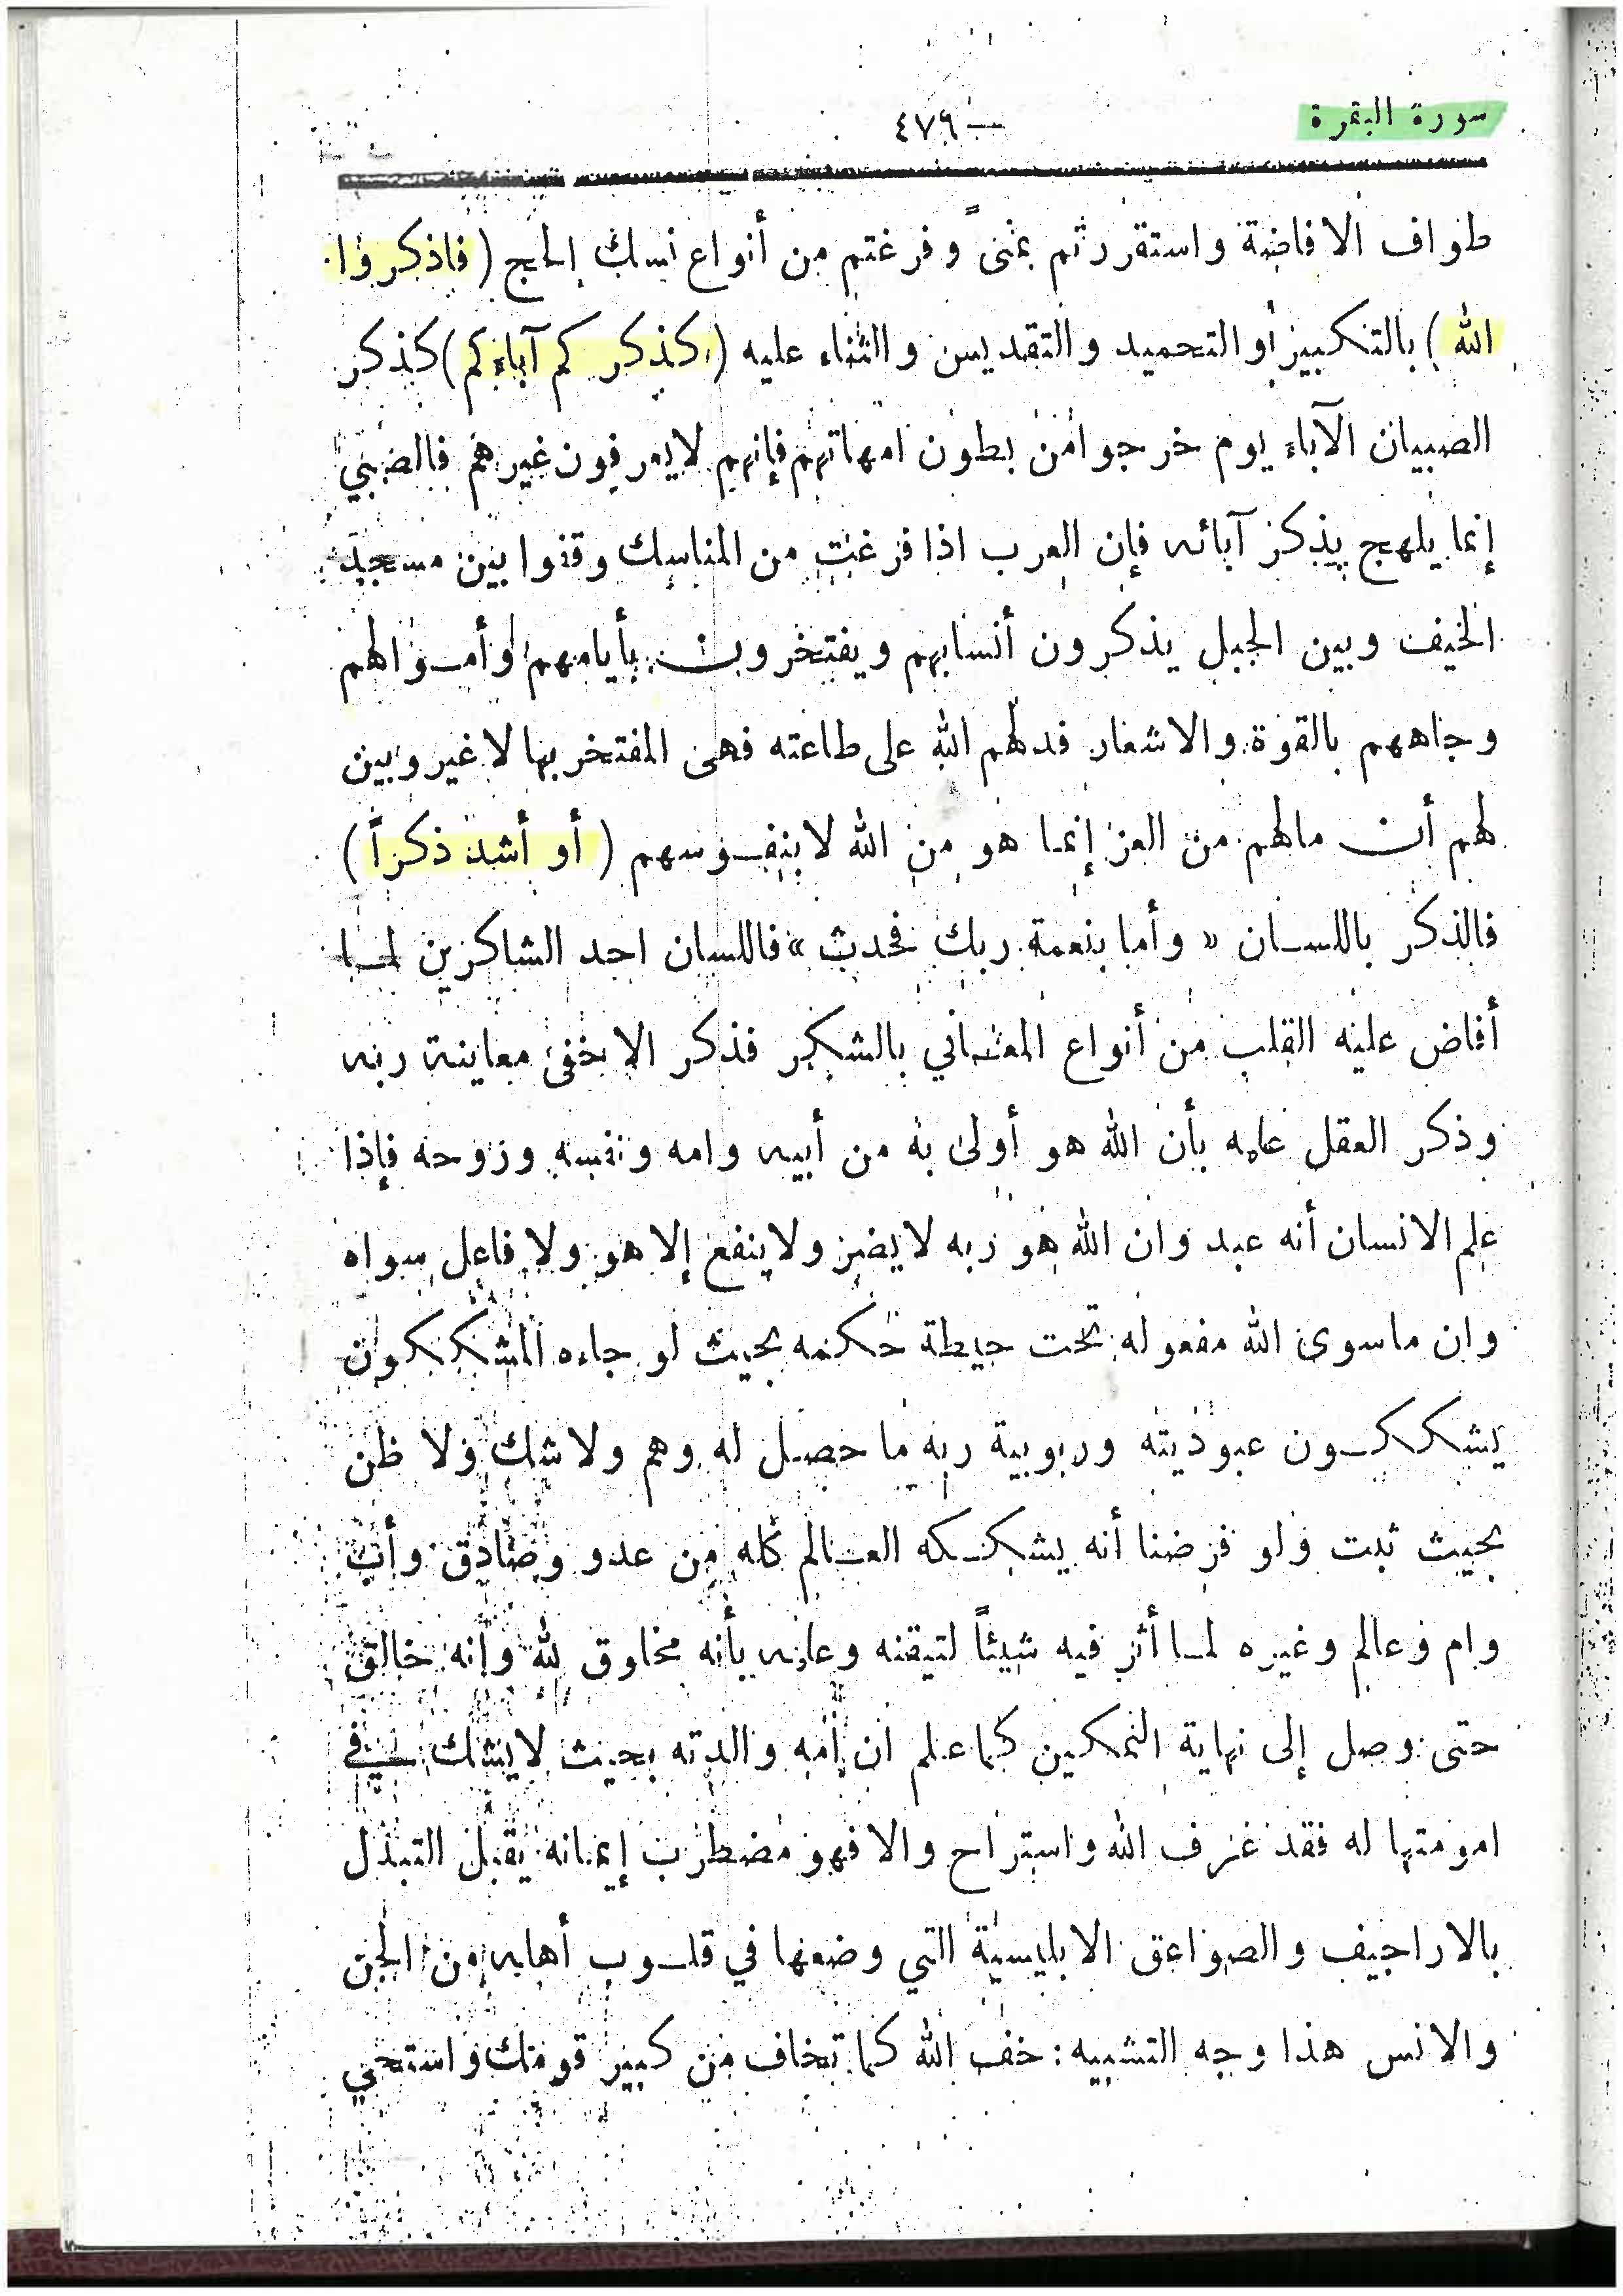 سورة البقرة
— ٤٧٩ —
طواف الافاضة واستقررتم بمنىً وفرغتم من أنواع نسك الحج ( فاذكروا
الله ) بالتكبير أو التحميد والتقديس والثناء عليه ( كذكركم آباءكم ) كذكر
الصبيان الآباء يوم خرجوا من بطون امهاتهم فإنهم لا يعرفون غيرهم فالصبي
إنما يلهج بذكر آبائه فإن العرب اذا فرغت من المناسك وقفوا بين مسجد
الخيف وبين الجبل يذكرون أنسابهم ويفتخرون بأيامهم وأموالهم
وجاههم بالقوة والاشعار فدلهم الله على طاعته فهى المفتخر بها لا غير وبين
لهم أن مالهم من العز إنما هو من الله لا بنفوسهم ( أو أشد ذكراً )
فالذكر باللسان « وأما بنعمة ربك فحدث » فاللسان احد الشاكرين لما
أفاض عليه القلب من أنواع المعاني بالشكر فذكر الاخفى معاينة ربه
وذكر العقل علمه بأن الله هو أولى به من أبيه وامه ونفسه وزوجه فإذا
علم الانسان أنه عبد وان الله هو ربه لا يضر ولا ينفع إلا هو ولا فاعل سواه
وان ماسوى الله مفعوله تحت حيطة حكمه بحيث لو جاءه المشككون
يشككون عبوديته وربوبية ربه ما حصل له وهم ولا شك ولا ظن
بحيث ثبت ولو فرضنا أنه يشككه العالم كله من عدو وصادق وأب
وام وعالم وغيره لما أثر فيه شيئاً لتيقنه وعلمه بأنه مخلوق لله وانه خالق
حتى وصل إلى نهاية التمكين كما علم ان امه والدته بحيث لا يشك في
امومتها له فقد عرف الله واستراح والا فهو مضطرب إيمانه يقبل التبدل
بالاراجيف والصواعق الابليسية التي وضعها في قلوب أهله من الجن
والانس هذا وجه التشبيه : خف الله كما تخاف من كبير قومك واستحي